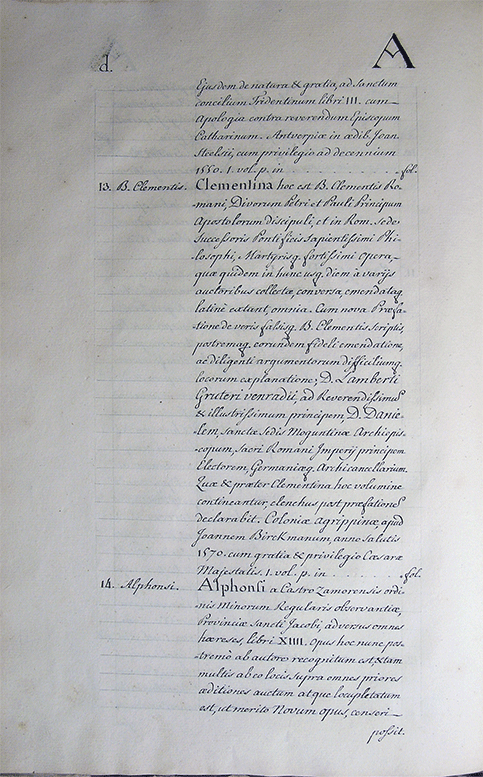 A
d.
Ejusdem de natura & gratia, ad Sanctum
concilium Tridentinum libri III. cum
Apologia contra reverendum Episcopum
Catharinum. Antverpiæ in ædib. Joan.
Steelsii, cum privilegio ad decennium
1550. 1. vol. p. in . . . . . . . . . . . fol.
13. B. Clementis. Clementina hoc est B. Clementis Ro-
mani, Divorum Petri et Pauli Principum
Apostolorum discipuli, et in Rom. Sede
Successoris Pontificis sapientissimi Phi-
losophi, Martyrisq. fortissimi Opera,
quæ quidem in hunc usq. diem à varijs
auctoribus collectæ, conversa, emendataq.
latinè extant, omnia. Cum nova Præfa-
tione de veris falsisq. B. Clementis scriptis,
postremaq. eorundem fideli emendatione,
ac diligenti argumentorum difficiliumq.
locorum explanatione; D. Lamberti
Gruteri venradii, ad Reverendissimũ
& illustrissimum principem, D. Danie-
lem, sanctæ Sedis Moguntinæ Archiepis-
copum, sacri Romani Imperij principem
Electorem, Germaniæq. Archicancellarium.
Quæ & præter Clementina hoc volumine
contineantur, elenchus post præfationẽ
declarabit. Coloniæ Agrippinæ, apud
Joannem Birckmanum, anno salutis
1570. cum gratia & privilegio Cæsaræ
Majestatis. 1. vol. p. in . . . . . . . fol.
14. Alphonsi. Alphonsi a Castro Zamorensis ordi-
nis Minorum Regularis observantiæ,
Provinciæ Sancti Jacobi, adversus omnes
hæreses, libri XIIII. Opus hoc nunc pos-
tremò ab autore recognitum est, & tam
multis ab eo locis supra omnes priores
æditiones auctum atque locupletatum
est, ut merito Novum opus, censeri
possit.